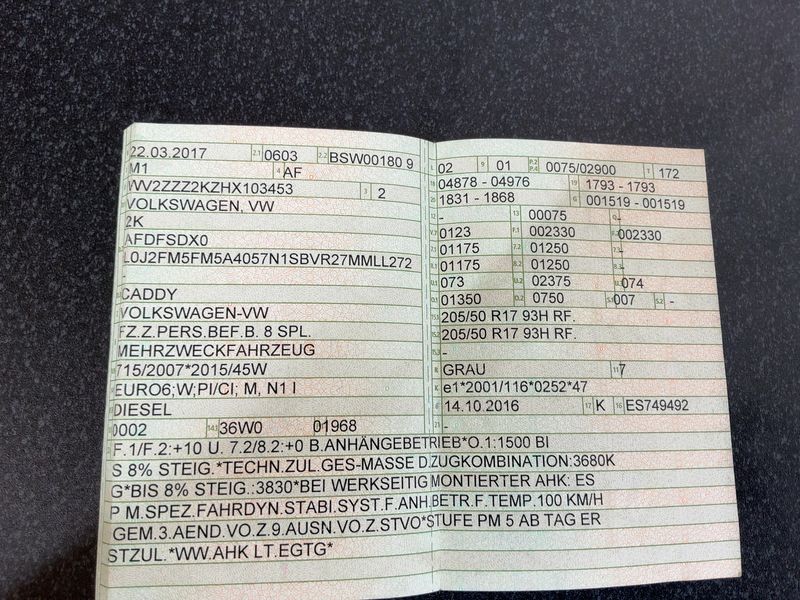 22.03.2017 2.1 0603 2.2 BSW00180 9
M1 4 AF
WV2ZZZ2KZHX103453 3 2
VOLKSWAGEN, VW
2K
AFDFSDX0
L0J2FM5FM5A4057N1SBVR27MMLL272
CADDY
VOLKSWAGEN-VW
FZ.Z.PERS.BEF.B. 8 SPL.
MEHRZWECKFAHRZEUG
715/2007*2015/45W
EURO6;W;PI/CI; M, N1 I
DIESEL
0002 14.1 36W0 01968
L 02 9 01 P.2 P.4 0075/02900 T 172
18 04878 - 04976 19 1793 - 1793
20 1831 - 1868 G 001519 - 001519
12 - 13 00075 Q -
V.7 0123 F.1 002330 F.2 002330
7.1 01175 7.2 01250 7.3 -
8.1 01175 8.2 01250 8.3 -
U.1 073 U.2 02375 U.3 074
O.1 01350 O.2 0750 S.1 007 S.2 -
15.1 205/50 R17 93H RF.
15.2 205/50 R17 93H RF.
15.3 -
R GRAU 11 7
K e1*2001/116*0252*47
6 14.10.2016 17 K 16 ES749492
21 -
F.1/F.2:+10 U. 7.2/8.2:+0 B.ANHÄNGEBETRIEB*O.1:1500 BI
S 8% STEIG.*TECHN.ZUL.GES-MASSE D.ZUGKOMBINATION:3680K
G*BIS 8% STEIG.:3830*BEI WERKSEITIG MONTIERTER AHK: ES
P M.SPEZ.FAHRDYN.STABI.SYST.F.ANH.BETR.F.TEMP.100 KM/H
GEM.3.AEND.VO.Z.9.AUSN.VO.Z.STVO*STUFE PM 5 AB TAG ER
STZUL.*WW.AHK LT.EGTG*